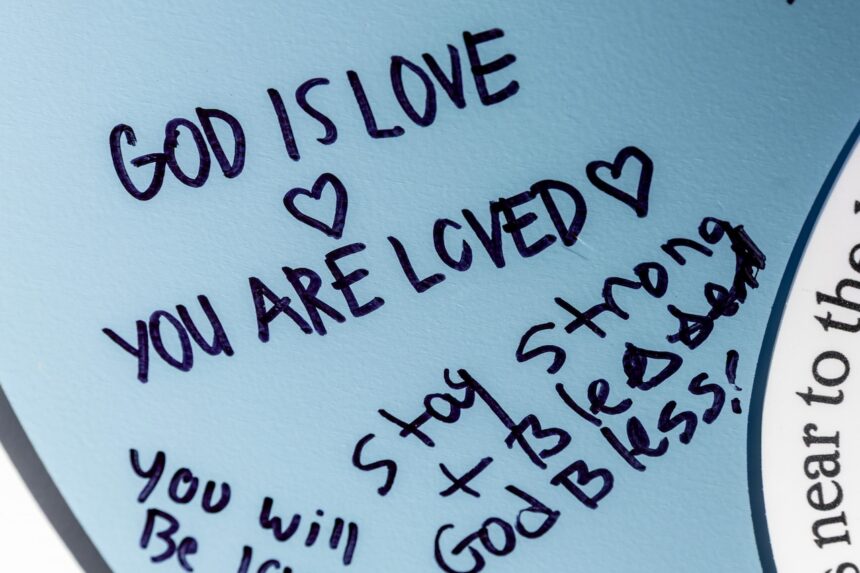 GOD IS LOVE
YOU ARE LOVED
Stay Strong
+ Blessed
God Bless!
You will
Be
s near to the